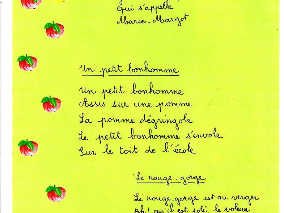 Qui s'appelle
Marie-Margot
Un petit bonhomme
Un petit bonhomme
Assis sur une pomme
La pomme dégringole
Le petit bonhomme s'envole
Sur le toit de l'école
Le rouge-gorge
Le rouge-gorge est au verger
Ah! qu'il est joli, le voleur